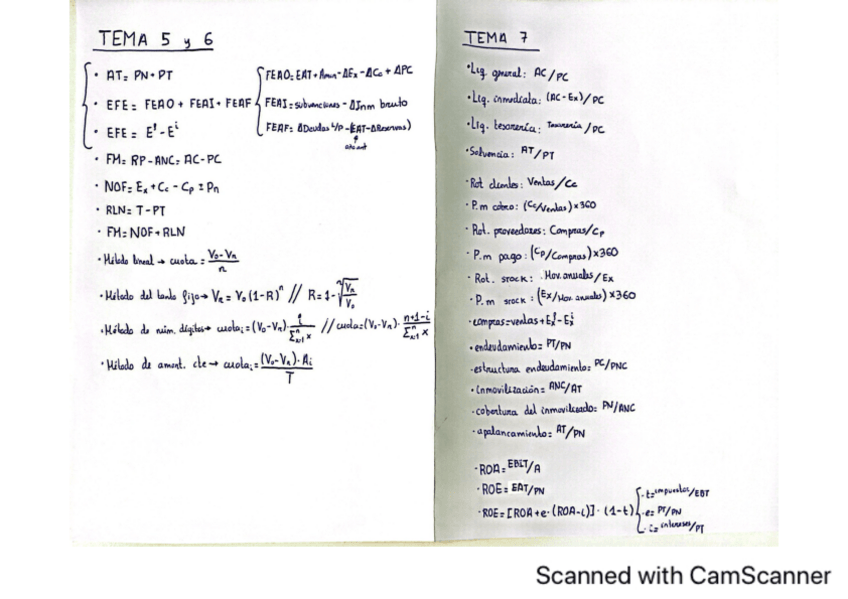 TEMA 5 y 6
· AT = PN + PT
· EFE = FEAO + FEAI + FEAF
FEAO = EAT + Amn - ΔEx - ΔCc + ΔPC
FEAI = subvenciones - ΔInm bruto
FEAF = ΔDeudas L/p - (EAT - ΔReservas)
· EFE = E^f - E^i
· FM = RP - ANC = AC - PC
· NOF = Ex + Cc - Cp = Pn
· RLN = T - PT
· FM = NOF + RLN
· Método lineal → cuota = (V0 - Vn)/n
· Método del tanto fijo → Vn = V0 (1-R)^n // R = 1 - ⁿ√(Vn/V0)
· Método de núm. dígitos → cuota_i = (V0 - Vn) · i/Σ^n_{x=1} x // cuota_i = (V0 - Vn) · (n+1-i)/Σ^n_{x=1} x
· Método de amort. cte → cuota_i = (V0 - Vn) · Ai / T
TEMA 7
· Liq. general: AC/PC
· Liq. inmediata: (AC - Ex)/PC
· Liq. tesorería: Tesorería/PC
· Solvencia: AT/PT
· Rot clientes: Ventas/Cc
· P.m cobro: (Cc/Ventas) x 360
· Rot. proveedores: Compras/Cp
· P.m pago: (Cp/Compras) x 360
· Rot. stock: Mov. anuales/Ex
· P.m stock: (Ex/Mov. anuales) x 360
· compras = ventas + E^f - E^i
· endeudamiento = PT/PN
· estructura endeudamiento = PC/PNC
· Inmovilización = ANC/AT
· cobertura del inmovilizado = PN/ANC
· apalancamiento = AT/PN
· ROA = EBIT/A
· ROE = EAT/PN
· ROE = [ROA + e · (ROA - i)] · (1 - t)
· t = impuestos/EBT
· e = PT/PN
· i = intereses/PT
Scanned with CamScanner